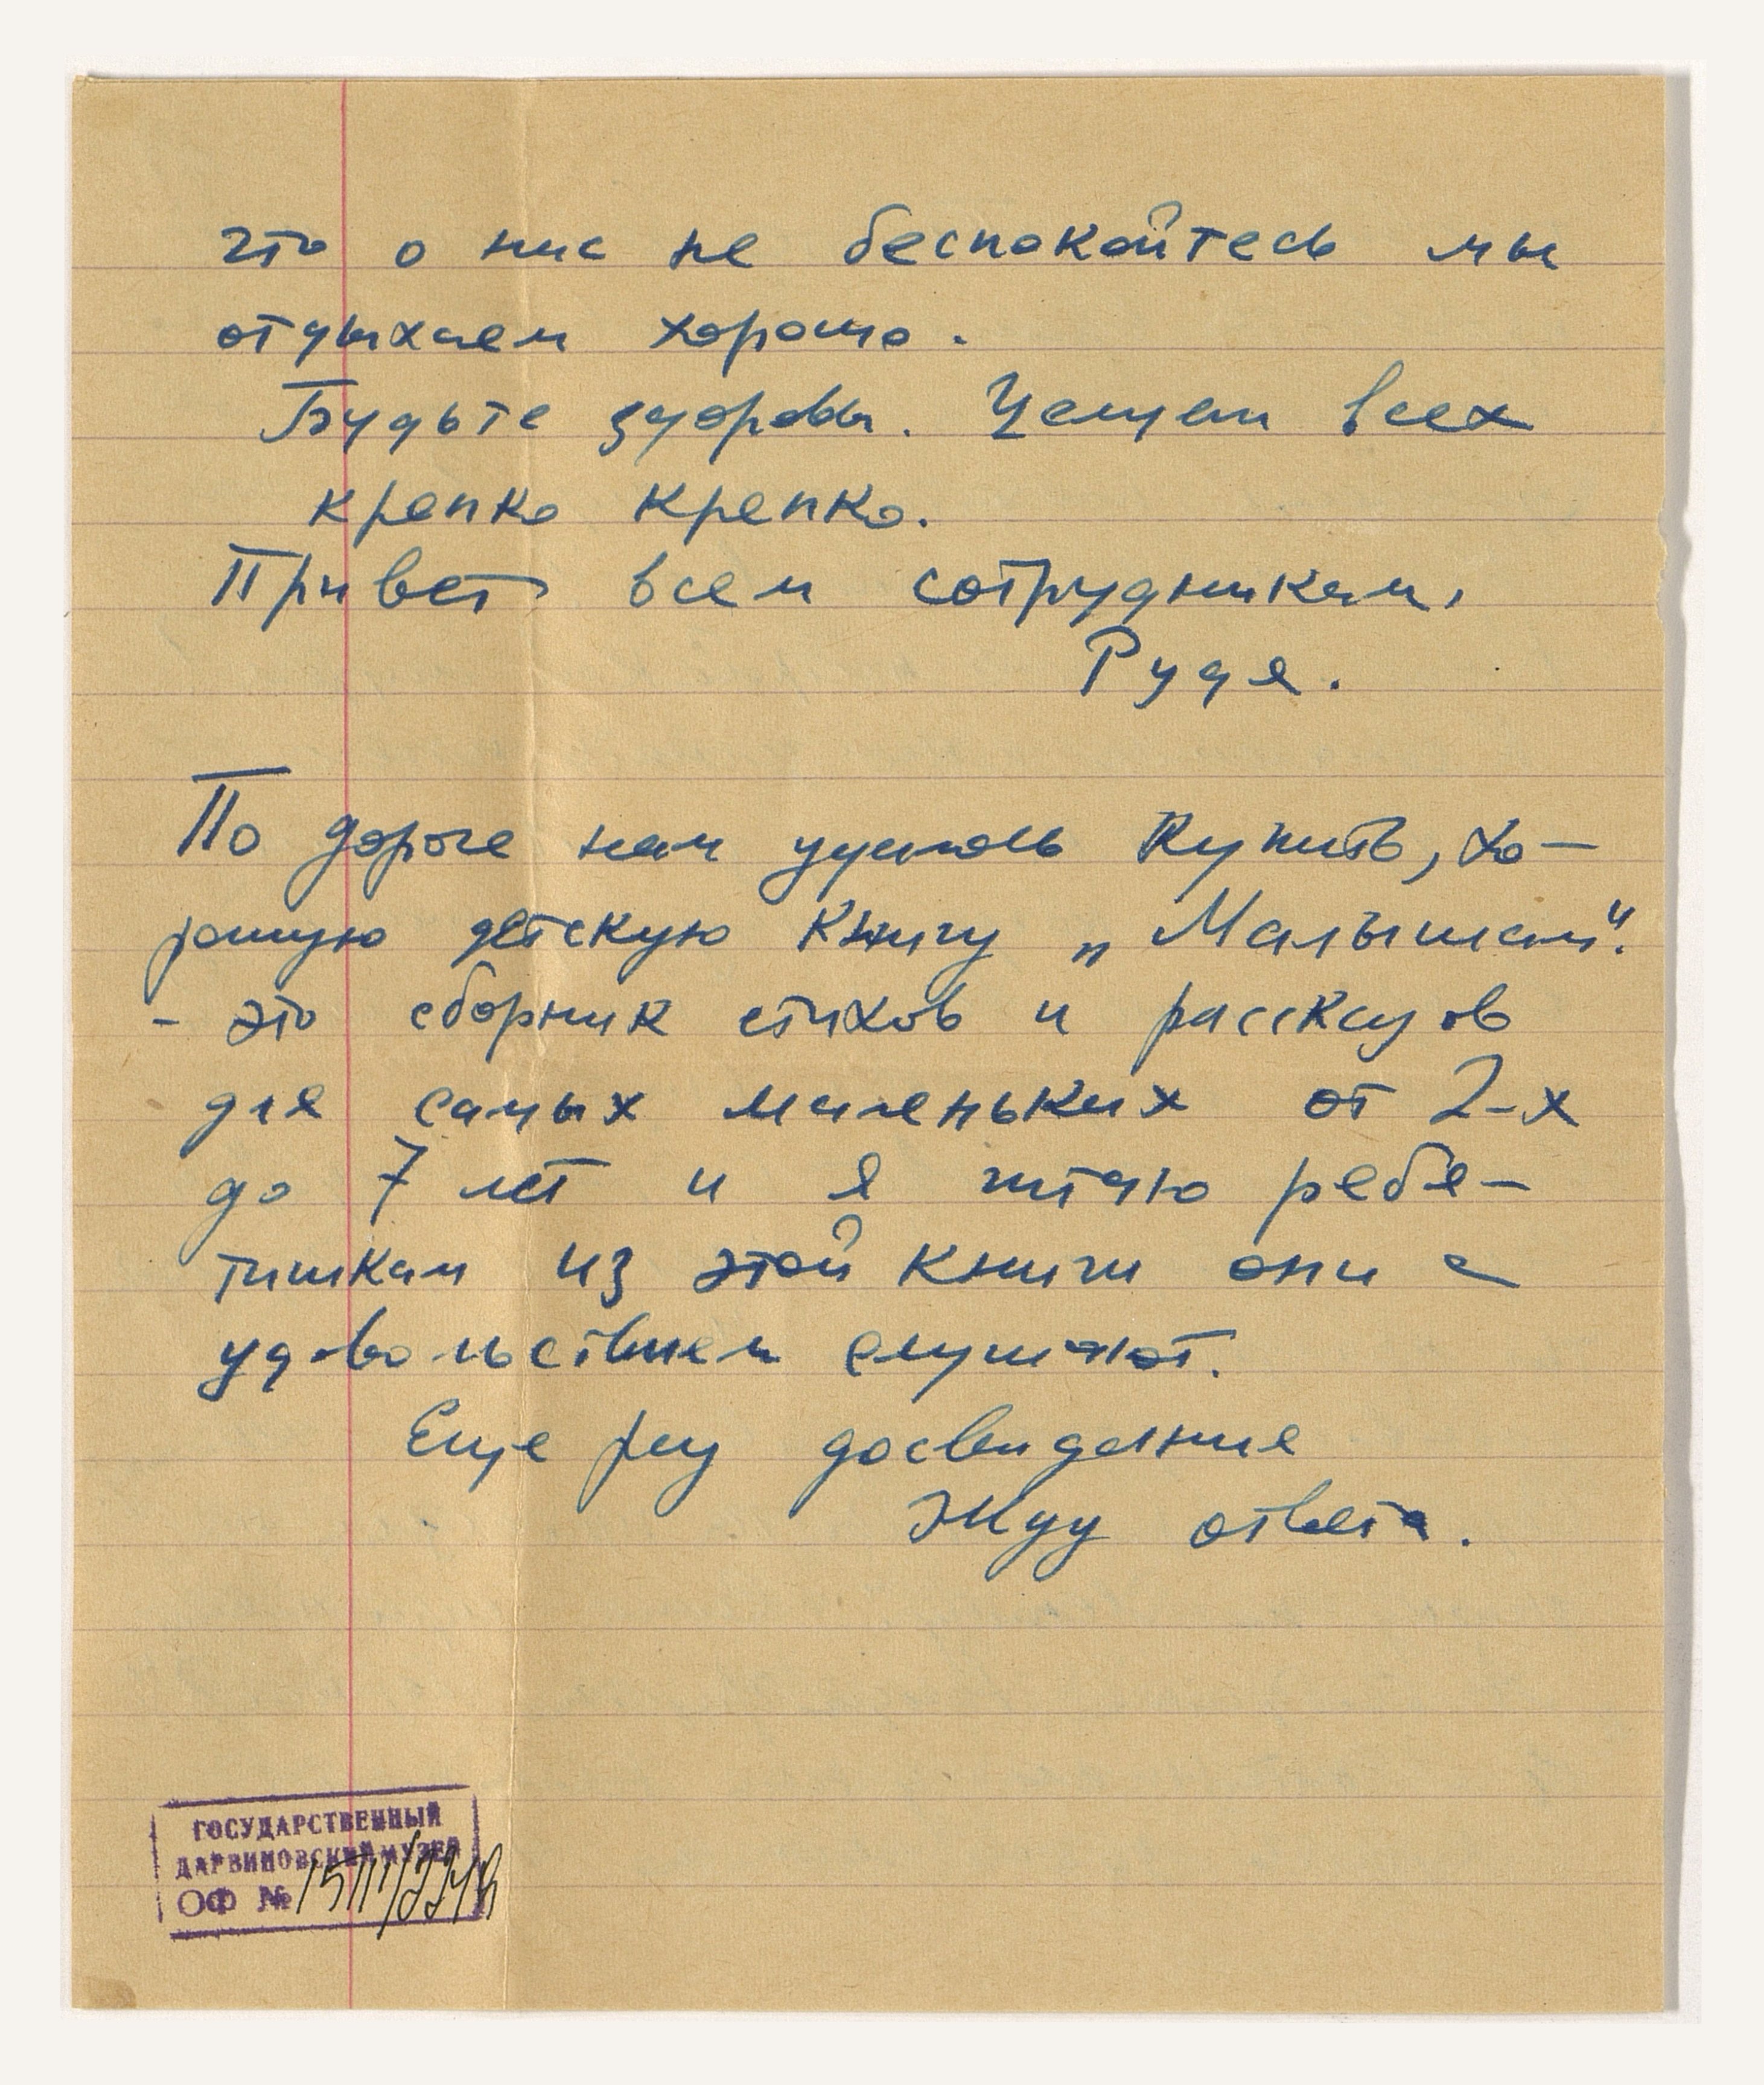 что о нас не беспокойтесь мы
отдыхаем хорошо.
Будьте здоровы. Целуем всех
крепко крепко.
Привет всем сотрудникам.
Рудя.
По дороге нам удалось купить, хо-
рошую детскую книгу „Малышам“.
- это сборник стихов и рассказов
для самых маленьких от 2-х
до 7 лет и я читаю ребя-
тишкам из этой книги они с
удовольствием слушают.
Еще раз досвидание
Жду ответа.
ГОСУДАРСТВЕННЫЙ
ДАРВИНОВСКИЙ МУЗЕЙ
ОФ №